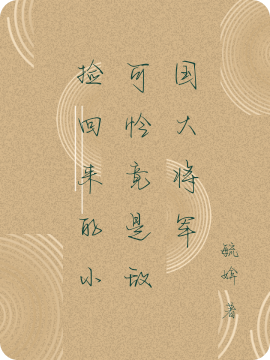 捡回来的小
可怜竟是敌
国大将军
毓婞著